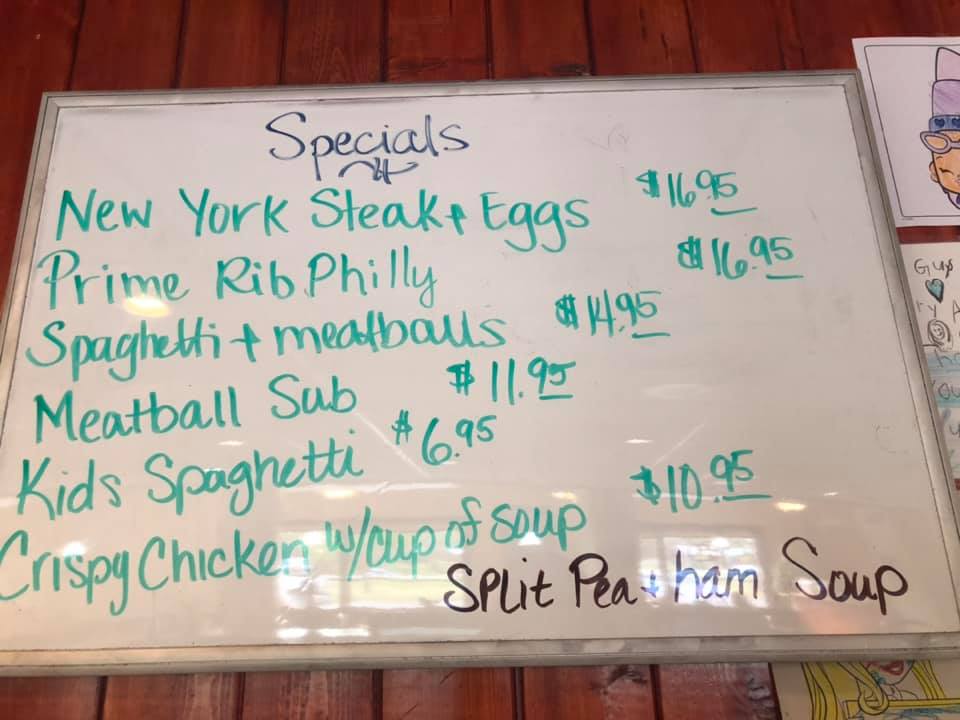 Specials
New York Steak + Eggs $16.95
Prime Rib Philly $16.95
Spaghetti + meatballs $14.95
Meatball Sub $11.95
Kids Spaghetti $6.95
Crispy Chicken w/cup of soup $10.95
Split Pea + ham Soup
Guys